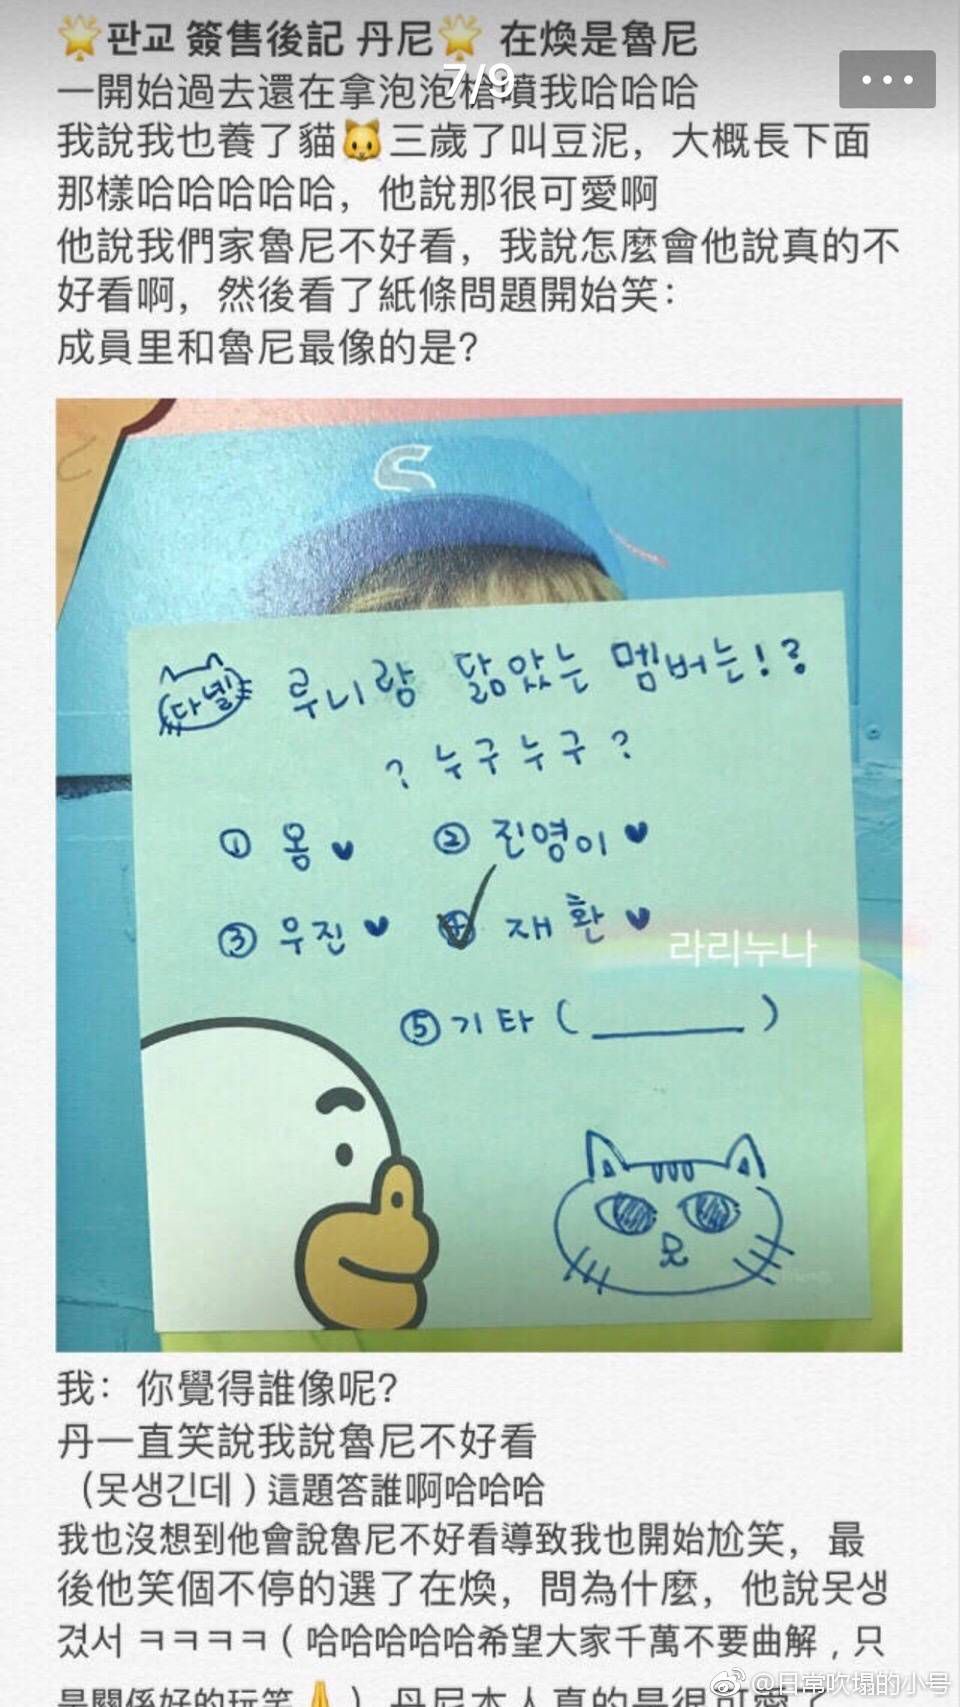 🌟판교 簽售後記 丹尼🌟 在煥是魯尼
7/9
一開始過去還在拿泡泡槍噴我哈哈哈
我說我也養了貓🐱三歲了叫豆泥，大概長下面
那樣哈哈哈哈哈，他說那很可愛啊
他說我們家魯尼不好看，我說怎麼會他說真的不
好看啊，然後看了紙條問題開始笑：
成員里和魯尼最像的是？
다녤 루니랑 닮았는 멤버는!?
? 누구누구 ?
① 옹♥ ② 진영이♥
③ 우진♥ ④ 재환♥
라리누나
⑤ 기타 ( ______ )
我：你覺得誰像呢？
丹一直笑說我說魯尼不好看
（못생긴데）這題答誰啊哈哈哈
我也沒想到他會說魯尼不好看導致我也開始尬笑，最
後他笑個不停的選了在煥，問為什麼，他說못생
겼서 ㅋㅋㅋㅋ（哈哈哈哈哈希望大家千萬不要曲解，只
是關係好的玩笑🙏）丹尼本人真的是很可愛
@日常吹塌的小号